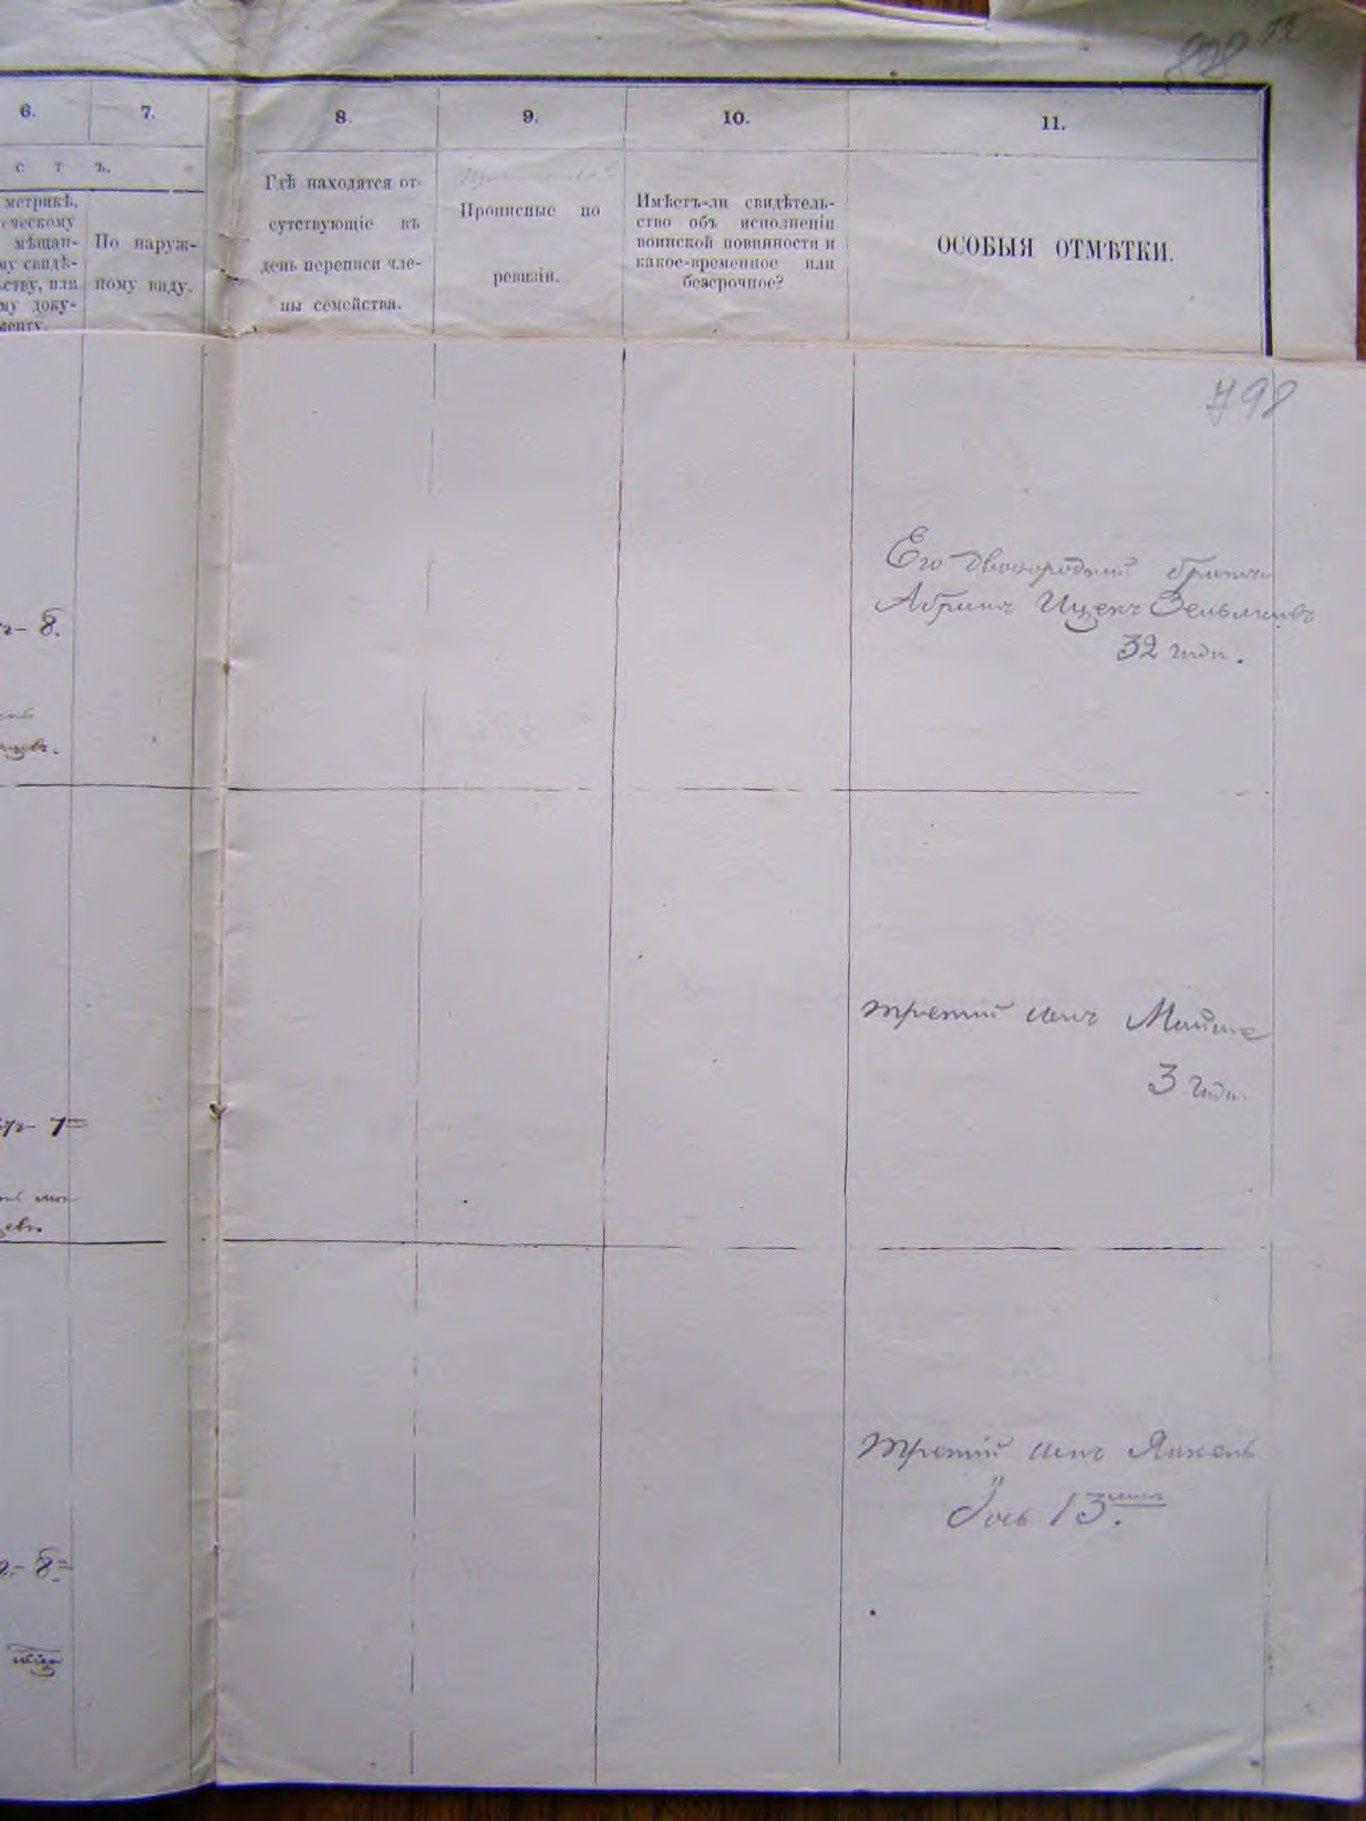 828
6.
7.
8.
9.
10.
11.
с т ъ.
метрикѣ,
ческому
мѣщан-
му свидѣ-
ству, или
му доку-
менту.
По наруж-
ному виду.
Гдѣ находятся от-
сутствующіе въ
день переписи чле-
ны семейства.
Прописные по
ревизіи.
Имѣетъ-ли свидѣтель-
ство объ исполненіи
воинской повинности и
какое-временное или
безсрочное?
ОСОБЫЯ ОТМѢТКИ.
798
Его двоюродный братъ
Абрамъ Ицекъ Зельманъ
32 года.
8.
третій сынъ
3 года.
7
третій сынъ Янкель
13
8